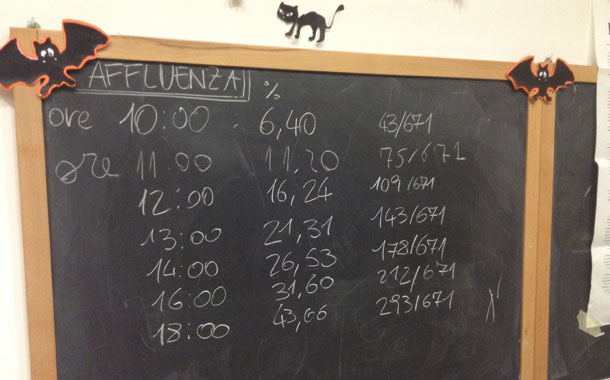 AFFLUENZA %
ore 10:00 : 6,40 43/671
ore 11:00 11,20 75/671
12:00 16,24 109/671
13:00 21,31 143/671
14:00 26,53 178/671
16:00 31,60 212/671
18:00 43,66 293/671